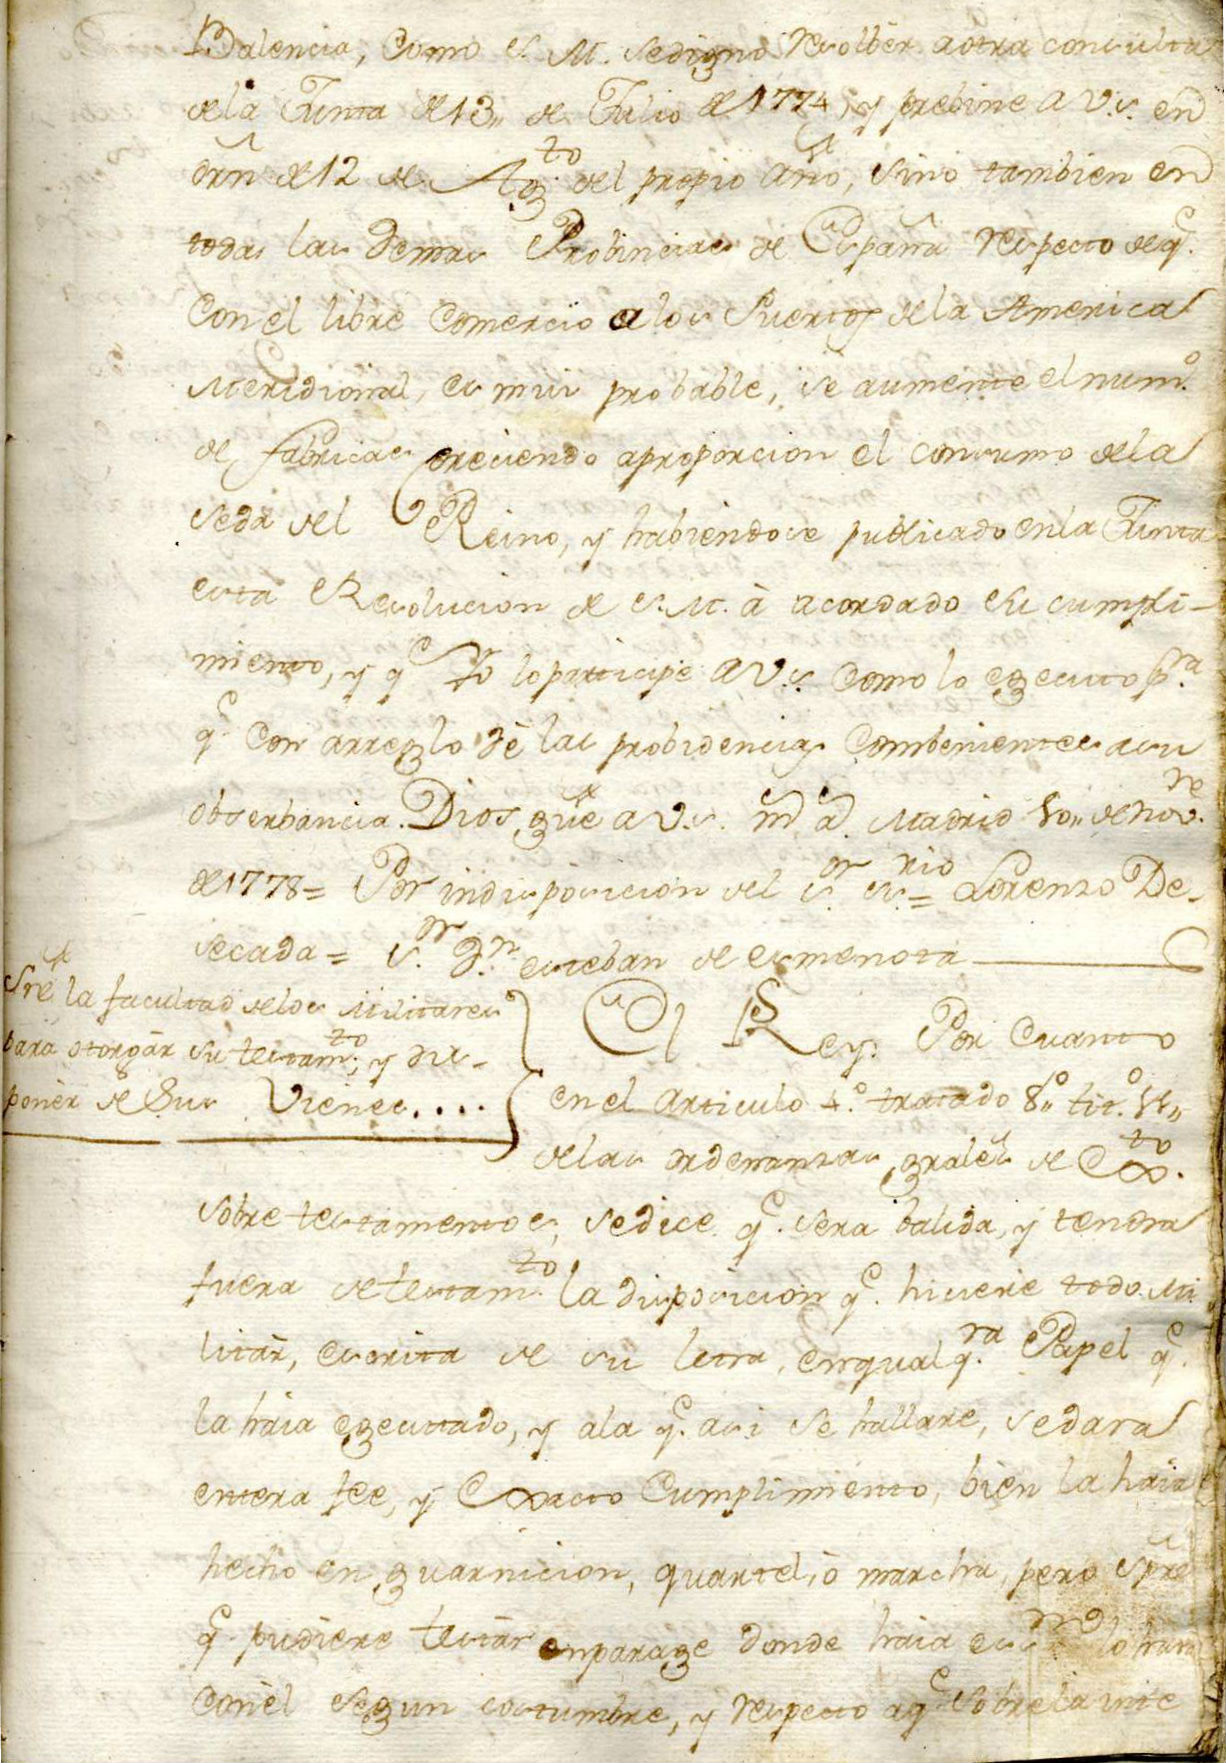 Balencia, como S. M. se digno resolber a otra consulta
de la Junta de 13,, de Julio de 1774, y prebine a V.S. en
orñ de 12 de Ag.to del propio año, sino tambien en
todas las demas Probincias de España respecto de q.e
con el libre comercio a los Puertos de la America
Meridional, es mui probable, se aumente el num.o
de fabricas creciendo a proporcion el consumo de la
seda del Reino, y habiendose publicado en la Junta
esta Resolucion de S. M. à acordado su cumpli-
miento, y q.e Yo lo participe a V.S. como lo egecuto p.ra
q.e con arreglo dè las probidencias combenientes a su
obserbancia. Dios güe a V.S. m.s a.s Madrid de Nov.re
de 1778 = Por indisposicion del S.or S.rio = Lorenzo De-
secada = S.or D.n Esteban de Esmenota
Sre la facultad de los Militares
para otorgàr su testam.to, y dis-
ponèr de sus Vienes....
El Rey. Por Cuanto
en el articulo 4.o tratado 8.o tit.o 11,,
de las ordenanzas grales de Ex.to
sobre testamentos, se dice q.e sera balida, y tendra
fuera de testam.to la disposicion q.e hiciere todo Mi-
litàr, escrita de su letra, en qualq.ra Papel q.e
la haia egecutado, y a la q.e asi se hallare, se dara
entera fee, y Exacto Cumplimiento, bien la haia
hecho en guarnicion, quartel, ò marcha, pero spre
q.e pudiere testàr en parage donde haia es.no lo hara
con èl segun costumbre, y respecto a q.e sobre la inte